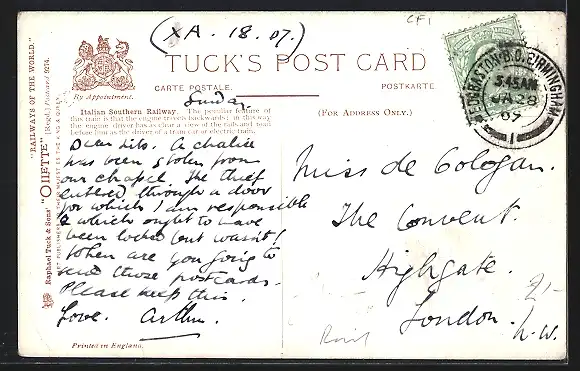 (XA. 18. 07.)
CF1
TUCK'S POST CARD
CARTE POSTALE.
POSTKARTE
By Appointment.
(FOR ADDRESS ONLY.)
Sunday
Italian Southern Railway. The peculiar feature of
this train is that the engine travels backwards; in this way
the engine driver has as clear a view of the rails and road
before him as the driver of a tram car or electric train.
Dear Sib. A chalice
has been stolen from
our chapel. The thief
entered through a door
for which I am responsible
& which ought to have
been locked but wasn't!
When are you going to
send those postcards.
Please keep this.
Love. Arthur.
Printed in England.
Miss de Cologan.
The Convent.
Highgate.
London.
N.W.
2/-
EDGBASTON B.O. BIRMINGHAM
545AM
09
1
"RAILWAYS OF THE WORLD."
Raphael Tuck & Sons' "OILETTE" [Regd.] Postcard 9274.
ART PUBLISHERS TO THEIR MAJESTIES THE KING & QUEEN